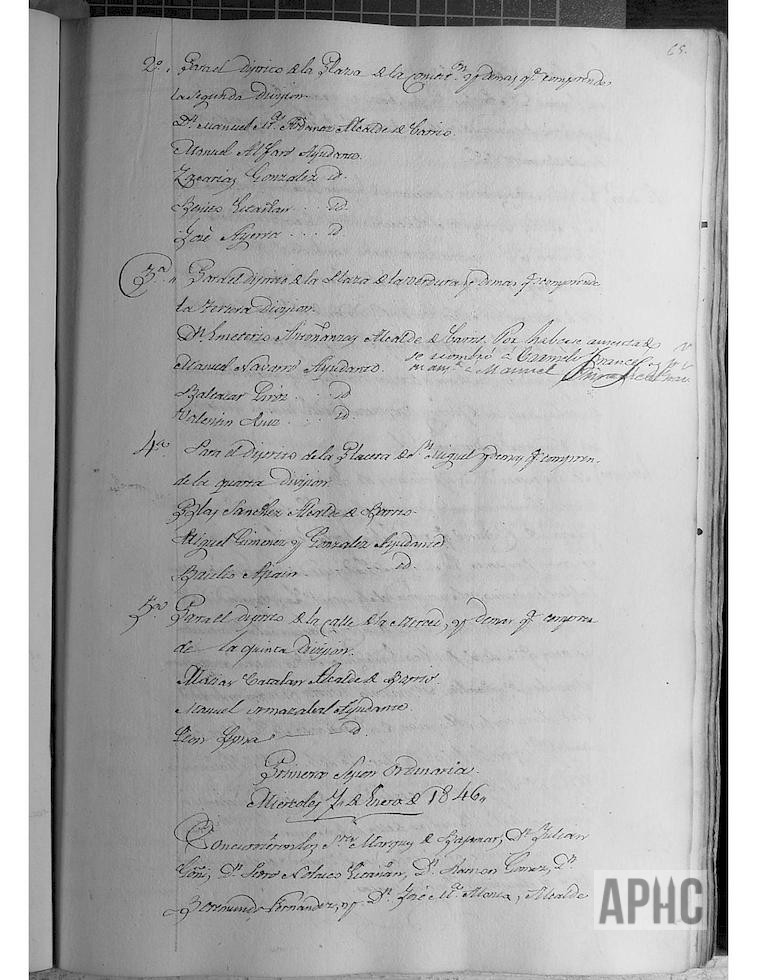 65.
2º. Para el distrito de la Plaza de la Constón y demas qe comprende
la segunda division.
Dn Manuel Mª Alcalde de Barrio.
Manuel Alfaro Ayudante.
Zacarias Gonzalez id.
Benito id.
José Ayerra id.
3ª. Para el distrito de la Plaza de la verdura, y demas qe comprende
la tercera division.
Dn Emeterio Alcalde de Barrio. Por haberse ausentado
se nombró á Carmelo Frances y
Manuel Navarro Ayudante. Manuel
Baltazar id
Valentin Ruiz id.
4ª. Para el distrito de la Placeta de Sn Miguel y demas qe compren-
de la quarta division.
Blas Sanchez Alcalde de Barrio.
Miguel Gimenez y Gonzalez Ayudante
Basilio id.
5ª. Para el distrito de la calle de la Merced, y demas qe compren
de la quinta Division.
Matias Catalan Alcalde de Barrio.
Manuel Armazabal Ayudante.
Leon id.
Primera Sesion Ordinaria.
Miercoles 7 de Enero de 1846.
Concurrieron los Sres Marques de Bajamar, Dn Julian
Goñi, Dn Pedro Nolasco Dn Ramon Gomez, Dn
Bermundo Fernandez, y Dn José Mª Alonso, Alcalde
APHC